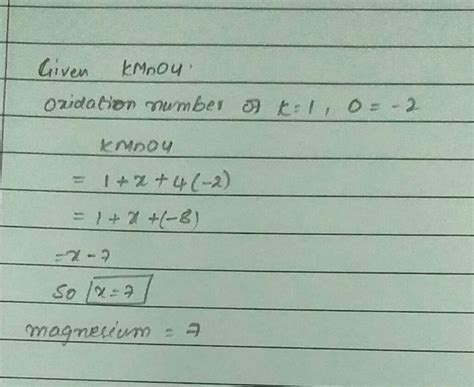 Given KMnO4.
oxidation number of K=1, O = -2
KMnO4
= 1+x+4(-2)
= 1+x+(-8)
=x-7
so x=7
magnesium = 7